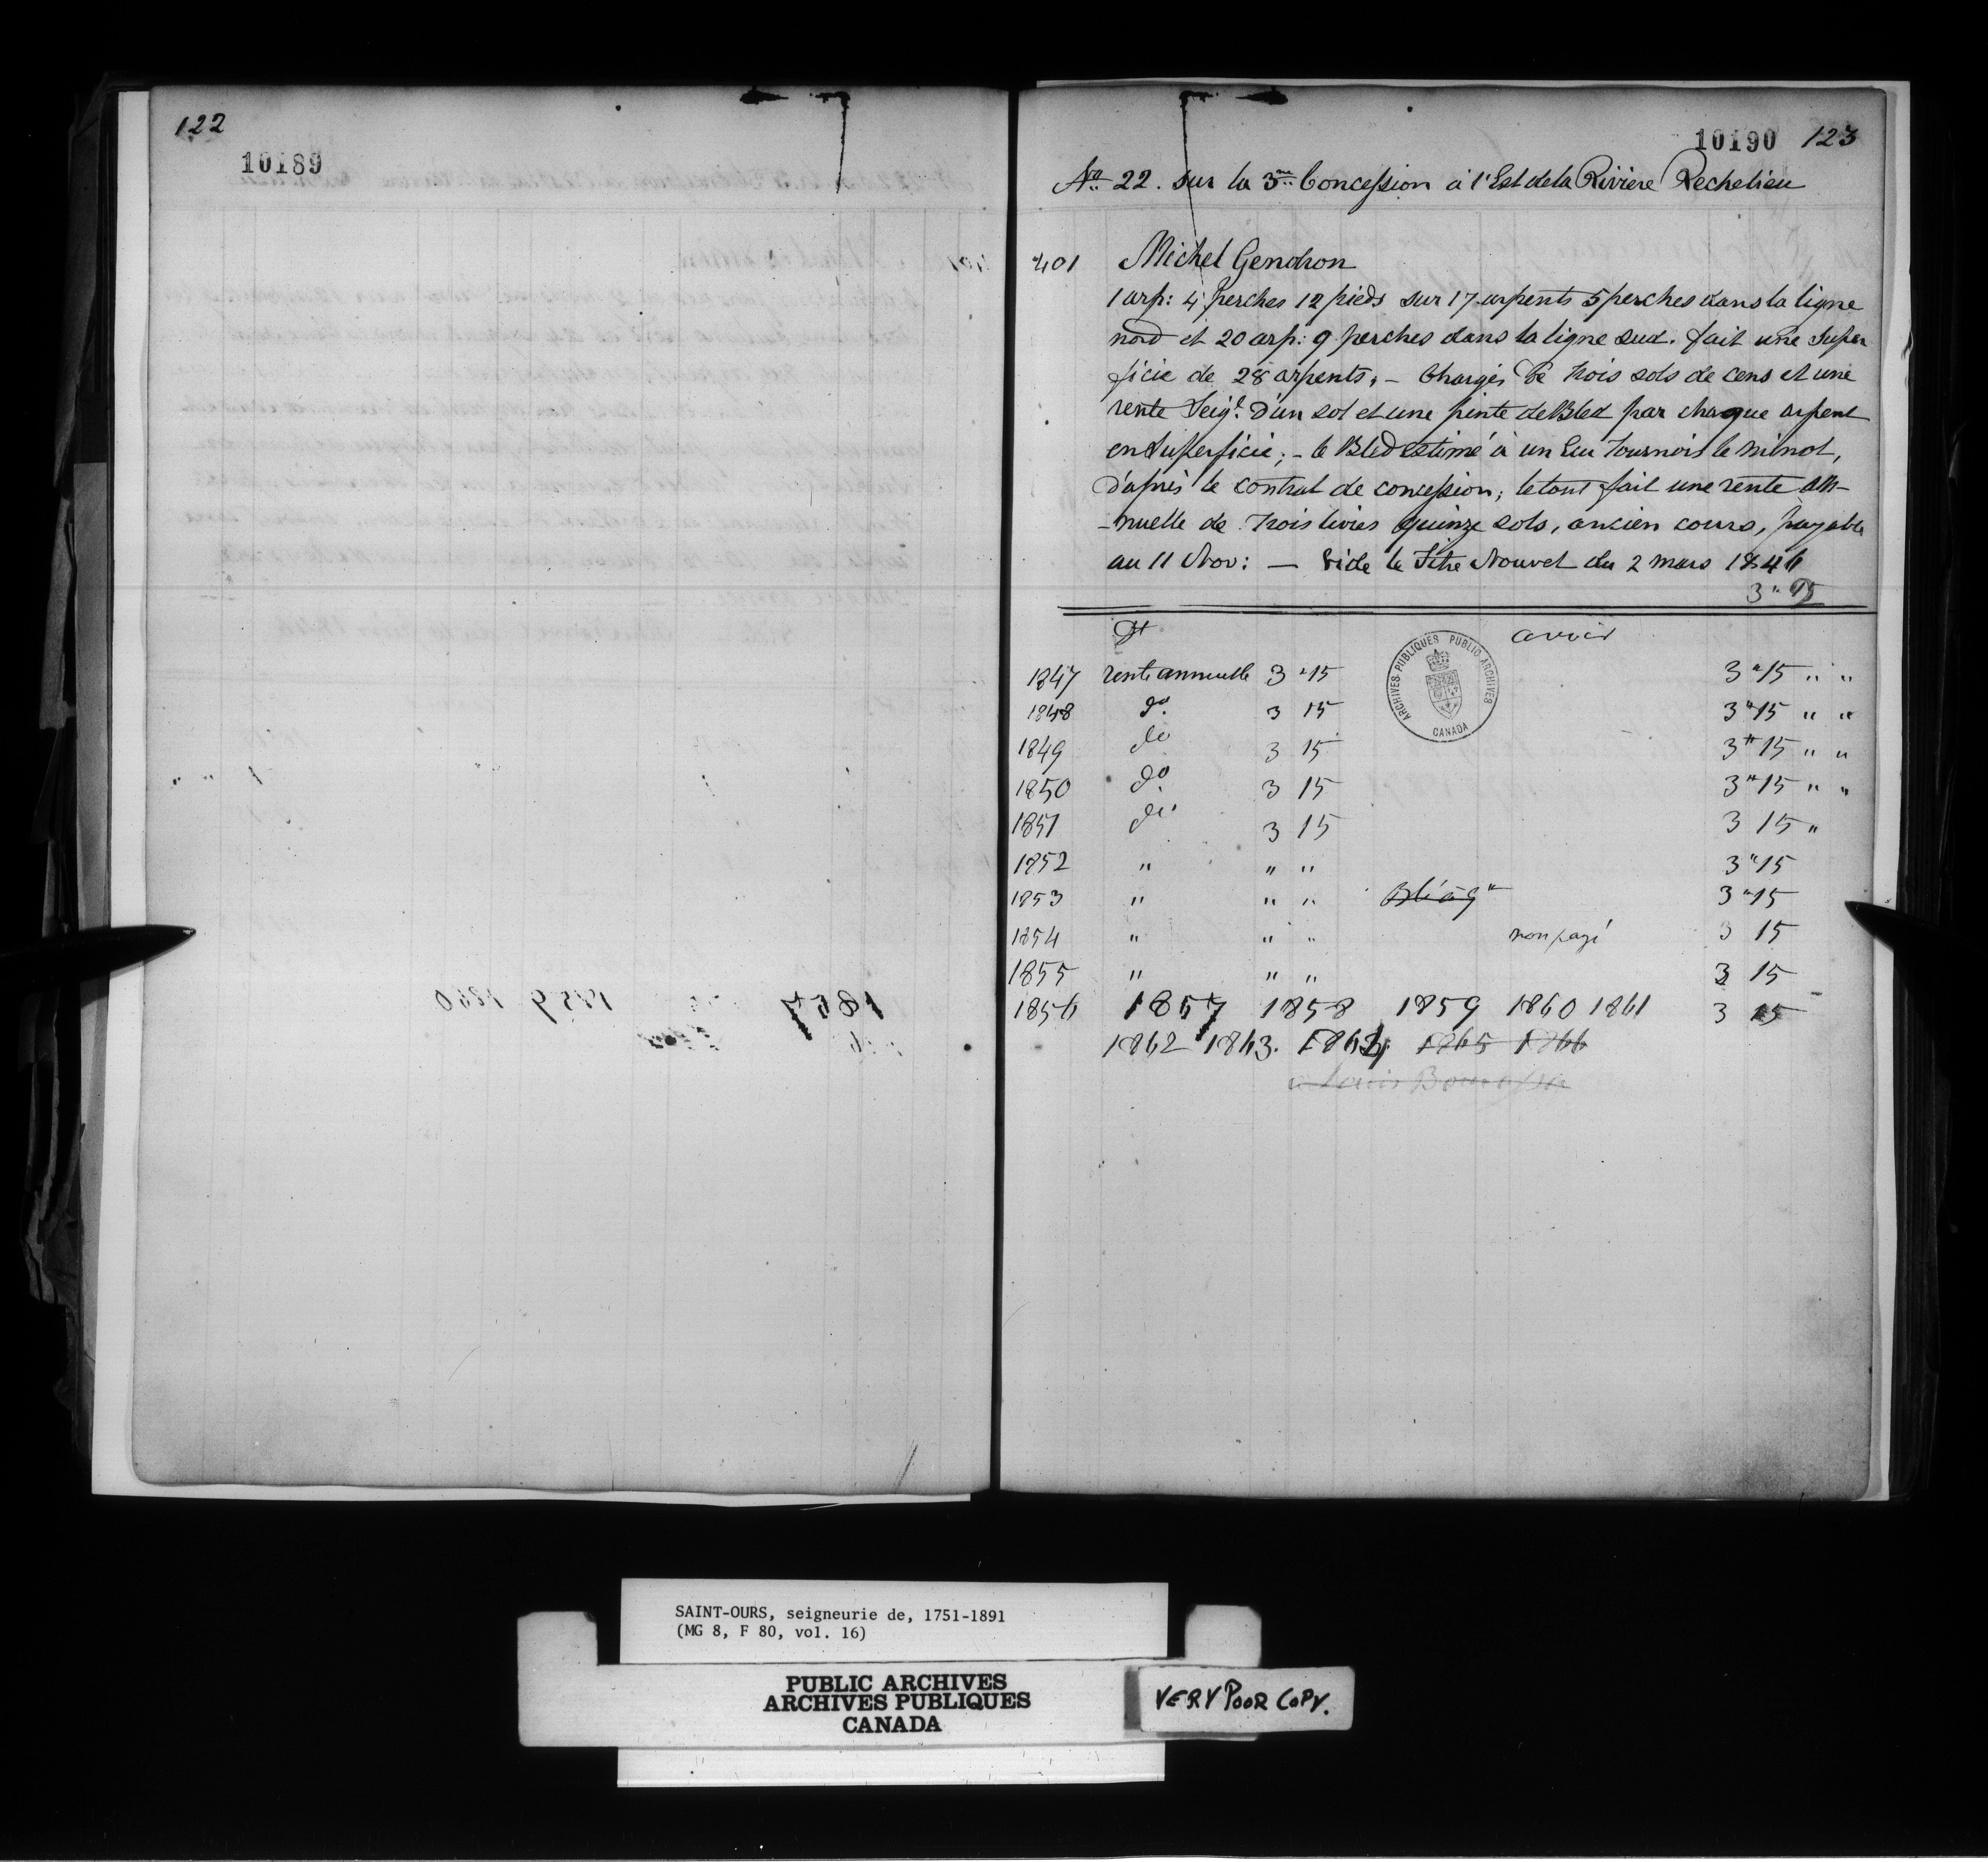 122
10189
10190 123
No 22. sur la 3me Concession à l'Est de la Riviere Rechelieu
401 Michel Gendron
1 arp: 4 perches 12 pieds sur 17 arpents 5 perches dans la ligne
nord et 20 arp: 9 perches dans la ligne sud. fait une Super
ficie de 28 arpents, - Chargés de trois sols de cens et une
rente Seigl. d'un sol et une pinte de Bled par chaque arpent
en Superficie; - le Bled estimé à un Ecu Tournois le minot,
d'après le contrat de concession; le tout fait une rente an-
-nuelle de trois livres quinze sols, ancien cours, payable
au 11 Nov: — Vide le Titre Nouvel du 2 mars 1846
3 " 15
Dt avoir
1847 rente annuelle 3 " 15 3 " 15 " "
1848 do. 3 15 3 " 15 " "
1849 do 3 15 3 " 15 " "
1850 do. 3 15 3 " 15 " "
1851 do 3 15 3 15 "
1852 " " " 3 " 15
1853 " " " 3 " 15
1854 " " " non payé 3 15
1855 " " " 3 15
1856 1857 1858 1859 1860 1861 3 15
1862 1863. 1864. 1865 1866
à Louis Bourassa
ARCHIVES PUBLIQUES PUBLIC ARCHIVES
CANADA
SAINT-OURS, seigneurie de, 1751-1891
(MG 8, F 80, vol. 16)
PUBLIC ARCHIVES
ARCHIVES PUBLIQUES
CANADA
VERY POOR COPY.